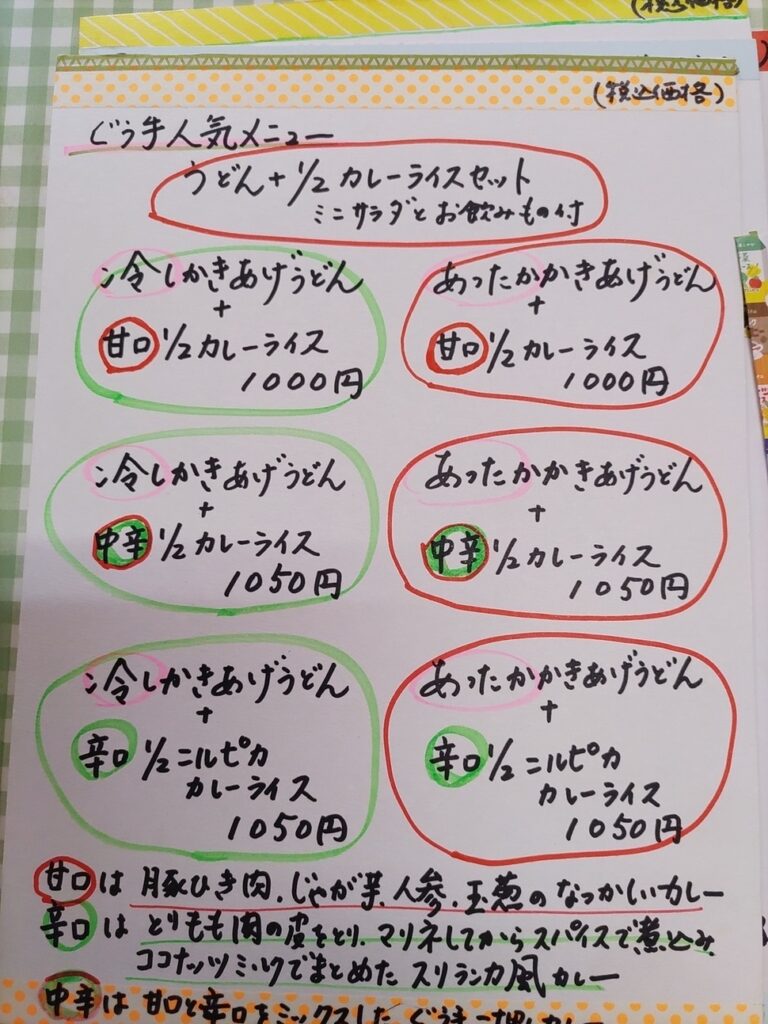 (税込価格)
ぐぅ手人気メニュー
うどん+1/2カレーライスセット
ミニサラダとお飲みもの付
冷しかきあげうどん
+
甘口 1/2カレーライス
1000円
あったかかきあげうどん
+
甘口 1/2カレーライス
1000円
冷しかきあげうどん
+
中辛 1/2カレーライス
1050円
あったかかきあげうどん
+
中辛 1/2カレーライス
1050円
冷しかきあげうどん
+
辛口 1/2ニルピカ
カレーライス
1050円
あったかかきあげうどん
+
辛口 1/2ニルピカ
カレーライス
1050円
甘口は 豚ひき肉、じゃが芋、人参、玉葱の なつかしいカレー
辛口は とりもも肉の皮をとり、マリネしてからスパイスで煮込み
ココナッツミルクでまとめた スリランカ風カレー
中辛は 甘口と辛口をミックスした